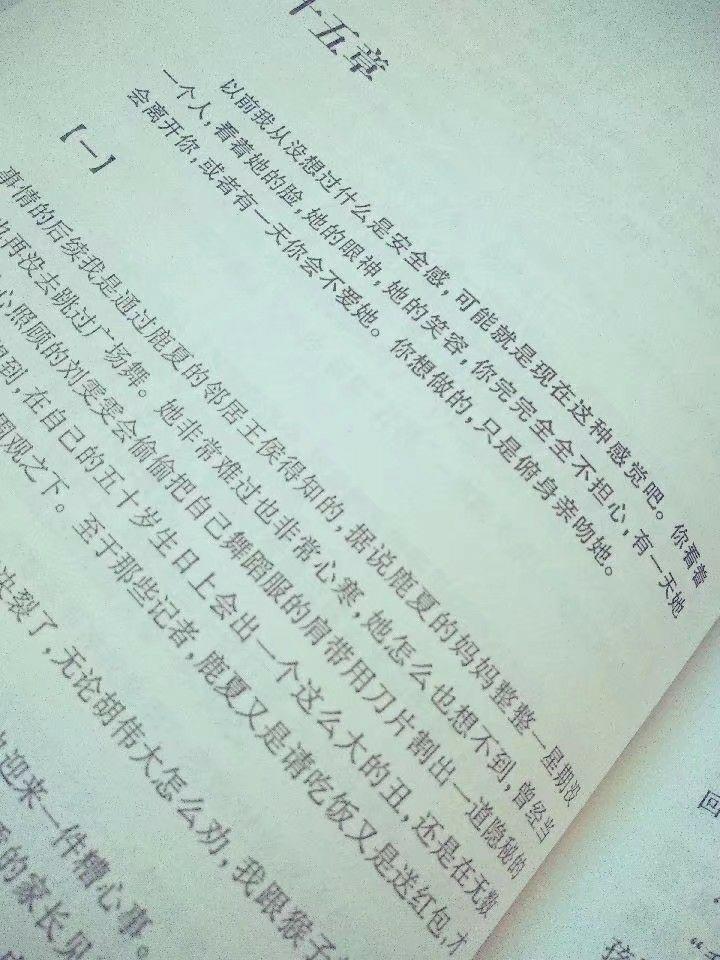 十五章
以前我从没想过什么是安全感，可能就是现在这种感觉吧。你看着
一个人，看着她的脸，她的眼神，她的笑容，你完完全全不担心，有一天她
会离开你，或者有一天你会不爱她。你想做的，只是俯身亲吻她。
【一】
事情的后续我是通过鹿夏的邻居王侯得知的，据说鹿夏的妈妈整整一星期没
再没去跳过广场舞。她非常难过也非常心寒，她怎么也想不到，曾经当
心照顾的刘雯雯会偷偷把自己舞蹈服的肩带用刀片割出一道隐秘的
到，在自己的五十岁生日上会出一个这么大的丑，还是在无数
围观之下。至于那些记者，鹿夏又是请吃饭又是送红包，才
决裂了，无论胡伟大怎么劝，我跟猴子
迎来一件糟心事。
的家长见
回